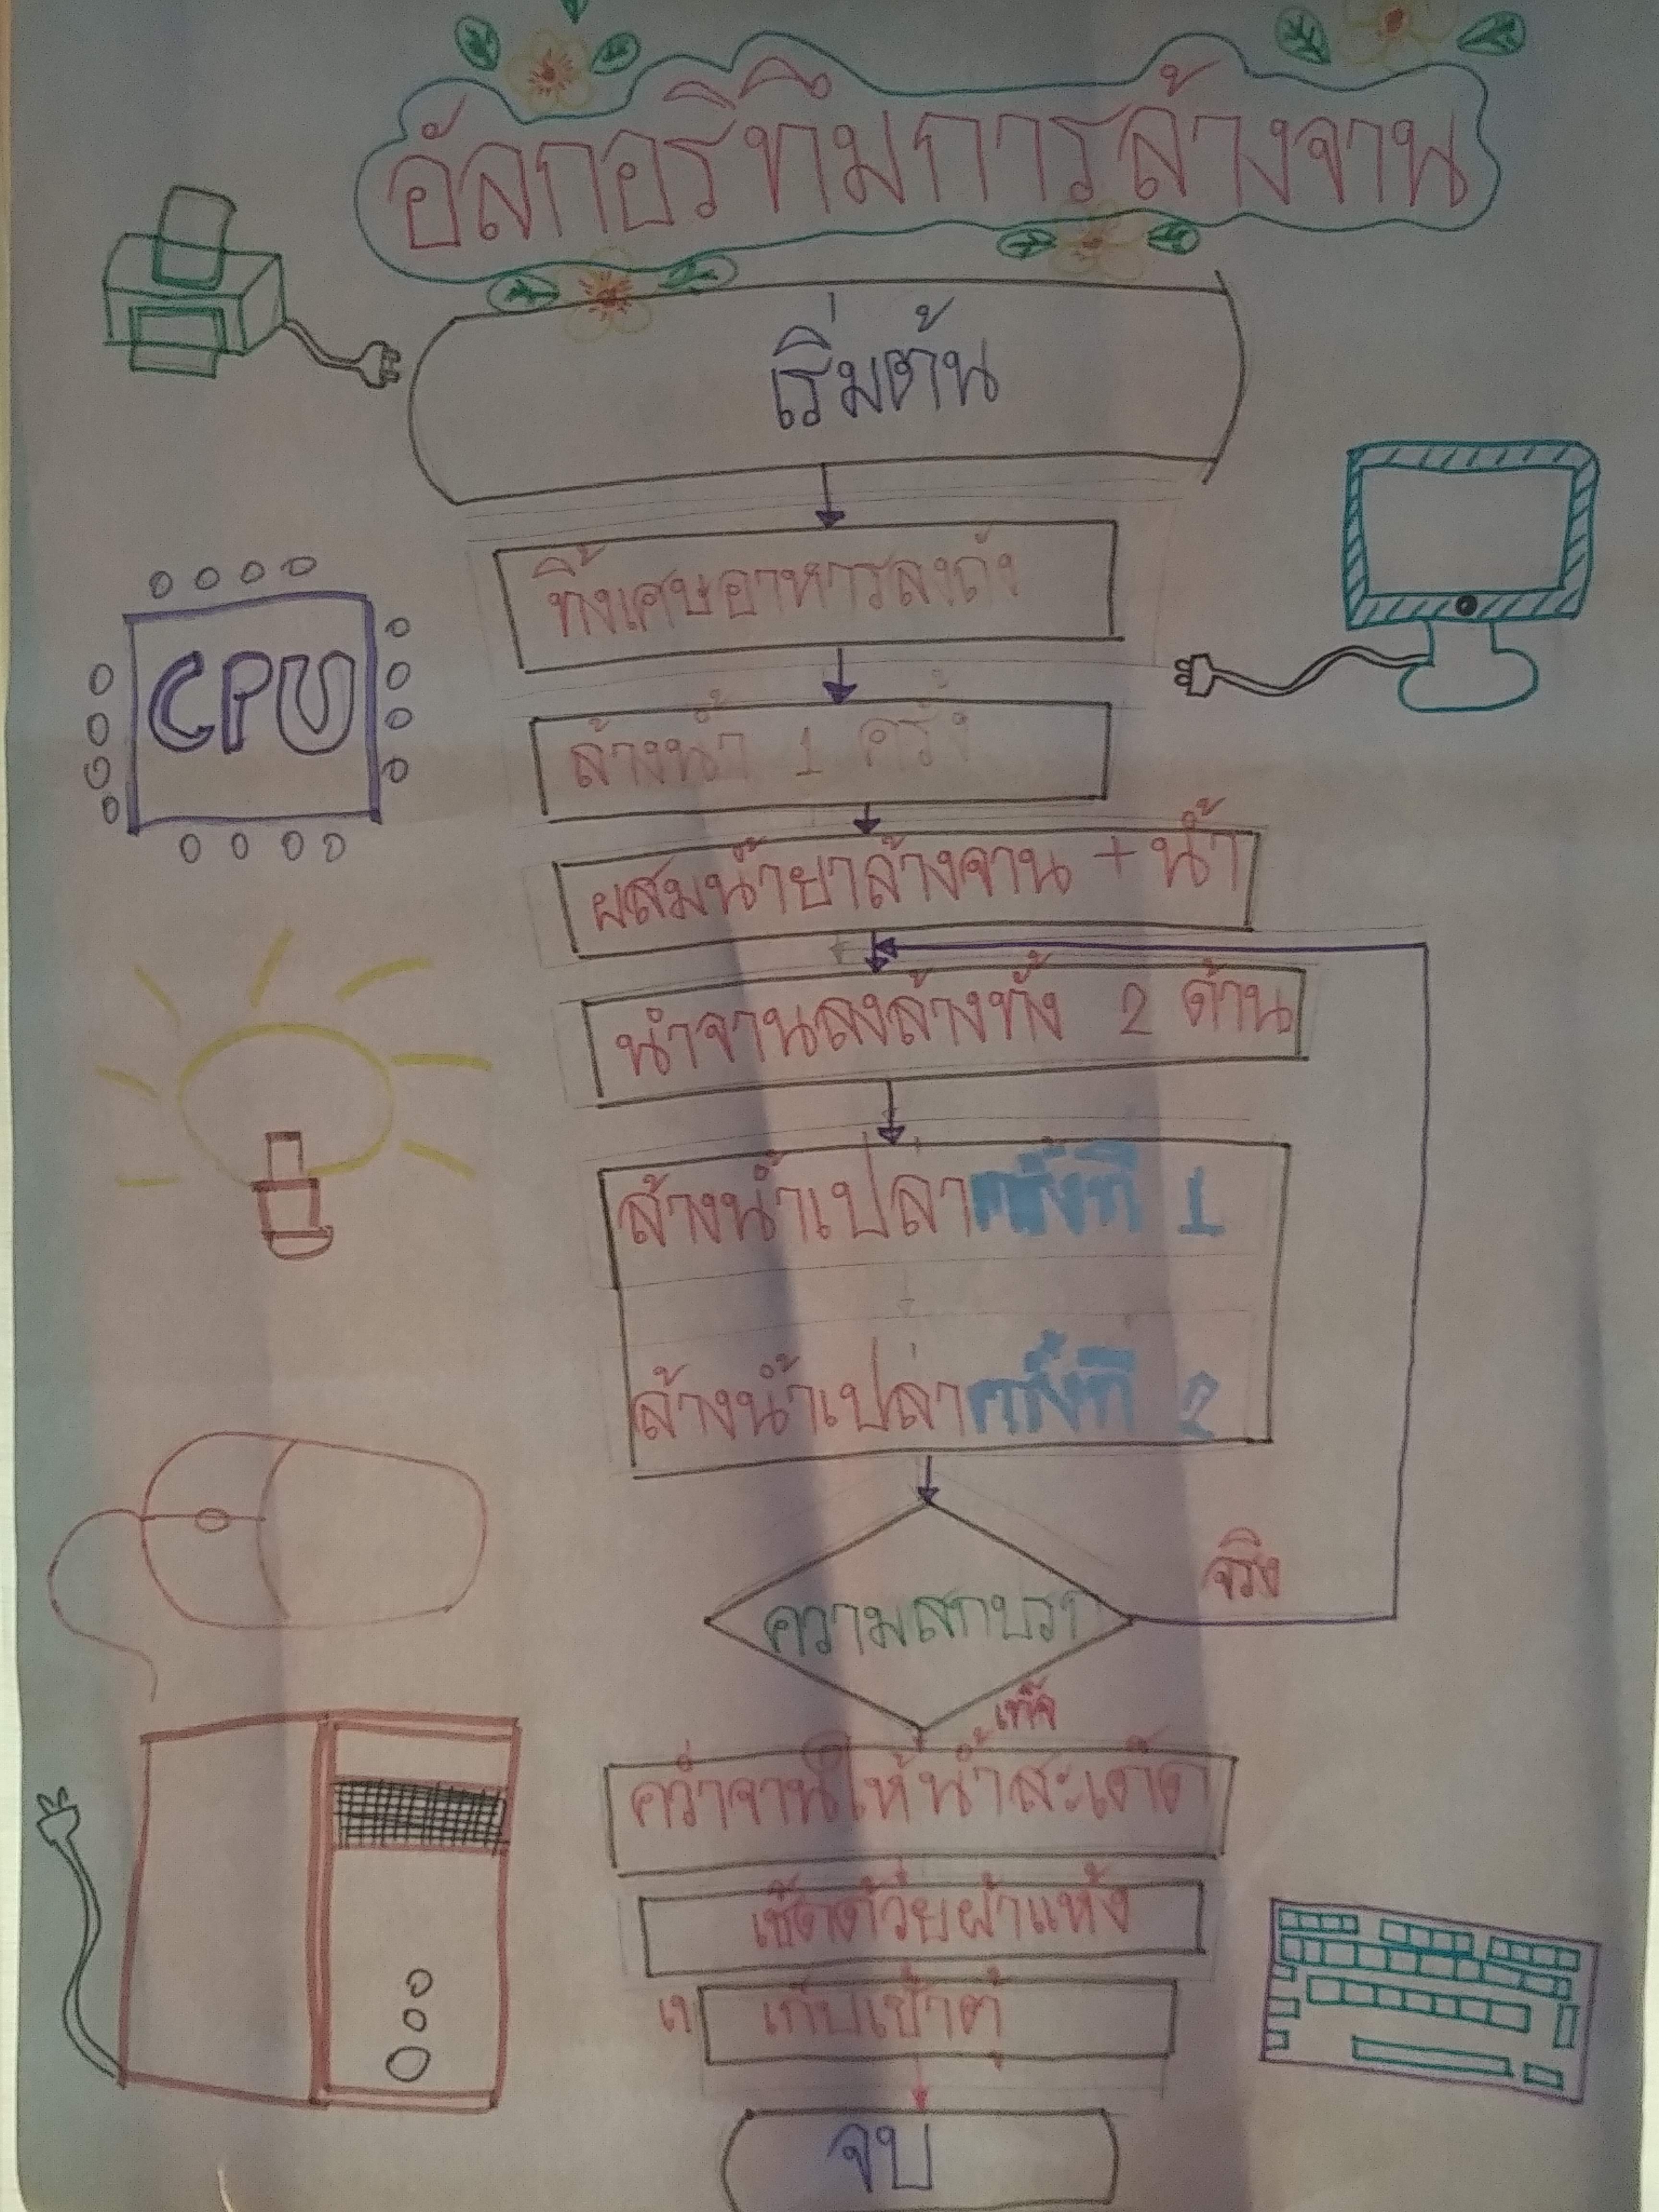 อัลกอริทึมการล้างจาน
เริ่มต้น
ทิ้งเศษอาหารลงถัง
CPU
ล้างน้ำ 1 ครั้ง
ผสมน้ำยาล้างจาน + น้ำ
นำจานลงล้างทั้ง 2 ด้าน
ล้างน้ำเปล่าครั้งที่ 1
ล้างน้ำเปล่าครั้งที่ 2
จริง
ความสกปรก
เท็จ
คว่ำจานให้น้ำสะเด็ด
เช็ดด้วยผ้าแห้ง
เก็บเข้าตู้
จบ